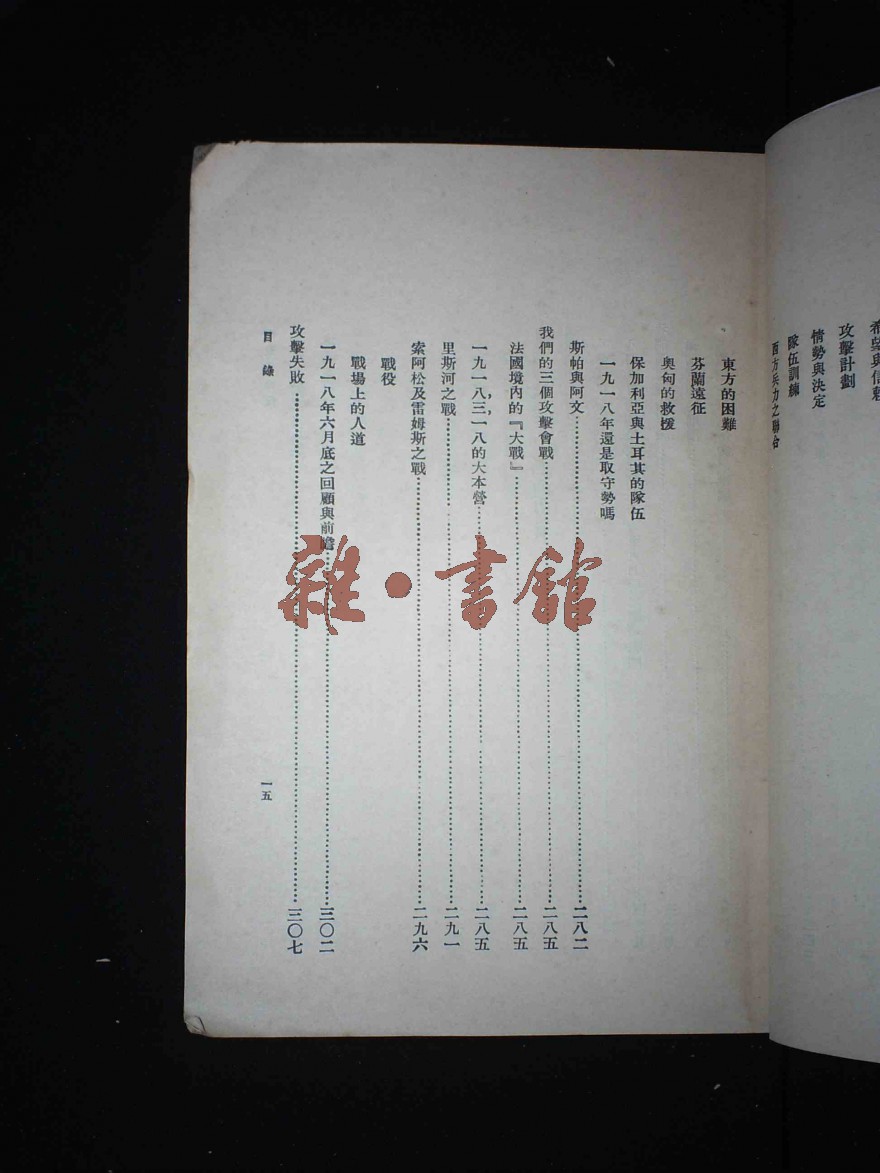 攻擊計劃
情勢與決定
隊伍訓練
西方兵力之聯合
東方的困難
芬蘭遠征
奧匈的救援
保加利亞與土耳其的隊伍
一九一八年還是取守勢嗎
斯帕與阿文……二八二
我們的三個攻擊會戰……二八五
法國境內的『大戰』……二八五
一九一八，三，一八的大本營……二八五
里斯河之戰……二九一
索阿松及雷姆斯之戰……二九六
戰役
戰場上的人道
一九一八年六月底之回顧與前瞻……三〇二
攻擊失敗……三〇七
目錄
一五
雜·書館